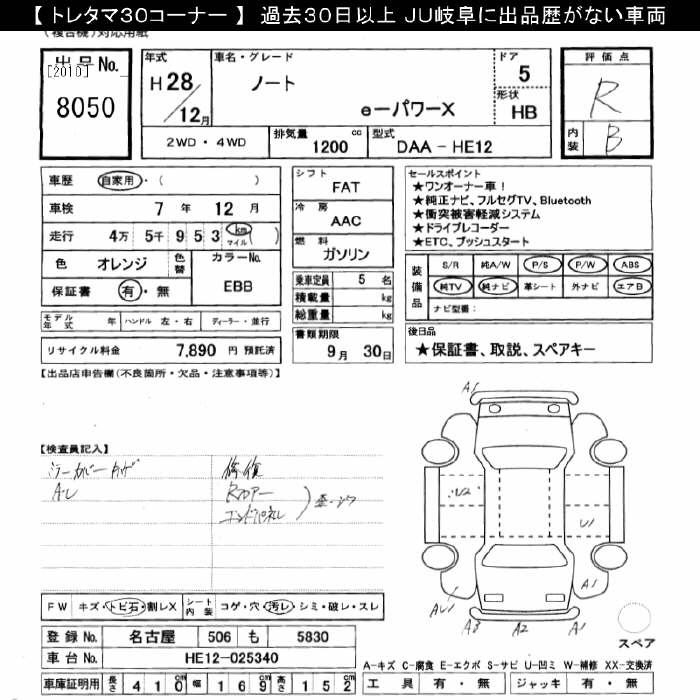 【 トレタマ30コーナー 】 過去30日以上 JU岐阜に出品歴がない車両
(複合機)対応用紙
出品No.
[2010]
8050
年式
H28/12月
車名・グレード
ノート
e-パワーX
ドア
5
形状
HB
2WD・4WD
排気量 1200 cc
型式 DAA - HE12
評価点
R
内装 B
車歴 自家用・( )
車検 7 年 12 月
走行 4万 5千 9 5 3 km マイル ( )
色 オレンジ 色替
カラーNo. EBB
保証書 有・無
モデル年式 年 ハンドル 左・右 ディーラー・並行
リサイクル料金 7,890 円 預託済
シフト
FAT
冷房
AAC
燃料
ガソリン
乗車定員 5 名
積載量 kg
総重量 kg
書類期限
9月 30日
セールスポイント
★ワンオーナー車!
★純正ナビ、フルセグTV、Bluetooth
★衝突被害軽減システム
★ドライブレコーダー
★ETC、プッシュスタート
装備品
S/R 純A/W P/S P/W ABS
純TV 純ナビ 革シート 外ナビ エアB
ナビ型番:
後日品
★保証書、取説、スペアキー
【出品店申告欄(不良箇所・欠品・注意事項等)】
【検査員記入】
ミラーカバーキズ
修復
Rフロアー
エンドパネル
A1
U2
U1
A1
A3 A2 A1
スペア
FW キズ・トビ石・割レX シート内装 コゲ・穴・汚レ・シミ・破レ・スレ
登録No. 名古屋 506 も 5830
車台No. HE12-025340
車庫証明用 長さ 410 幅 169 高さ 152
A-キズ C-腐食 E-エクボ S-サビ U-凹ミ W-補修 XX-交換済
工具 有・無 ジャッキ 有・無